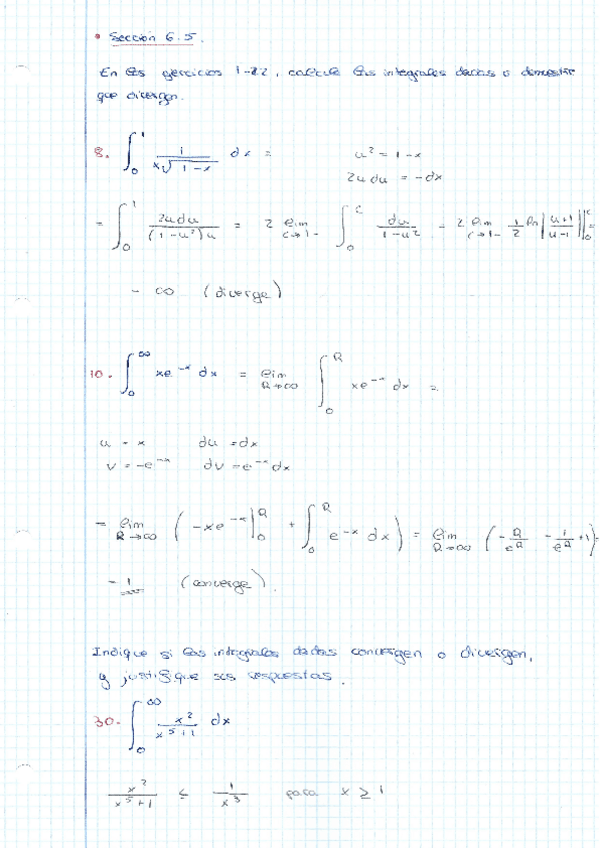 • Sección 6.5.
En los ejercicios 1-22, calcule las integrales dadas o demuestre
que divergen.
8. ∫₀¹ 1/(x√(1-x)) dx = u² = 1-x
2u du = -dx
= ∫₀¹ 2u du/((1-u²)u) = 2 lim_{c→1-} ∫₀ᶜ du/(1-u²) = 2 lim_{c→1-} 1/2 ln|(u+1)/(u-1)||₀ᶜ =
= ∞ (diverge)
10. ∫₀^∞ xe^{-x} dx = lim_{R→∞} ∫₀ᴿ xe^{-x} dx =
u = x du = dx
v = -e^{-x} dv = e^{-x} dx
= lim_{R→∞} (-xe^{-x}|₀ᴿ + ∫₀ᴿ e^{-x} dx) = lim_{R→∞} (-R/eᴿ - 1/eᴿ + 1) =
= 1 (converge).
Indique si las integrales dadas convergen o divergen,
y justifique sus respuestas.
30. ∫₀^∞ x²/(x⁵+1) dx
x²/(x⁵+1) ≤ 1/x³ para x ≥ 1